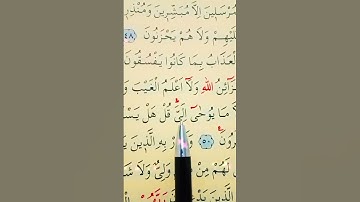 مُرْسَلٖينَ اِلَّا مُبَشِّرٖينَ وَمُنْذِرٖ
عَلَيْهِمْ وَلَا هُمْ يَحْزَنُونَ ﴿٤٨﴾
الْعَذَابُ بِمَا كَانُوا يَفْسُقُونَ
خَزَٓائِنُ اللّٰهِ وَلَٓا اَعْلَمُ الْغَيْبَ وَ
لَّا مَا يُوحٰٓى اِلَيَّ قُلْ هَلْ يَسْ
رُونَ ﴿٥٠﴾ وَ رْ بِهِ الَّذٖينَ يَ
لَهُمْ مِنْ وَلِيٌّ وَلَا شَ
الَّذٖينَ يَدْ